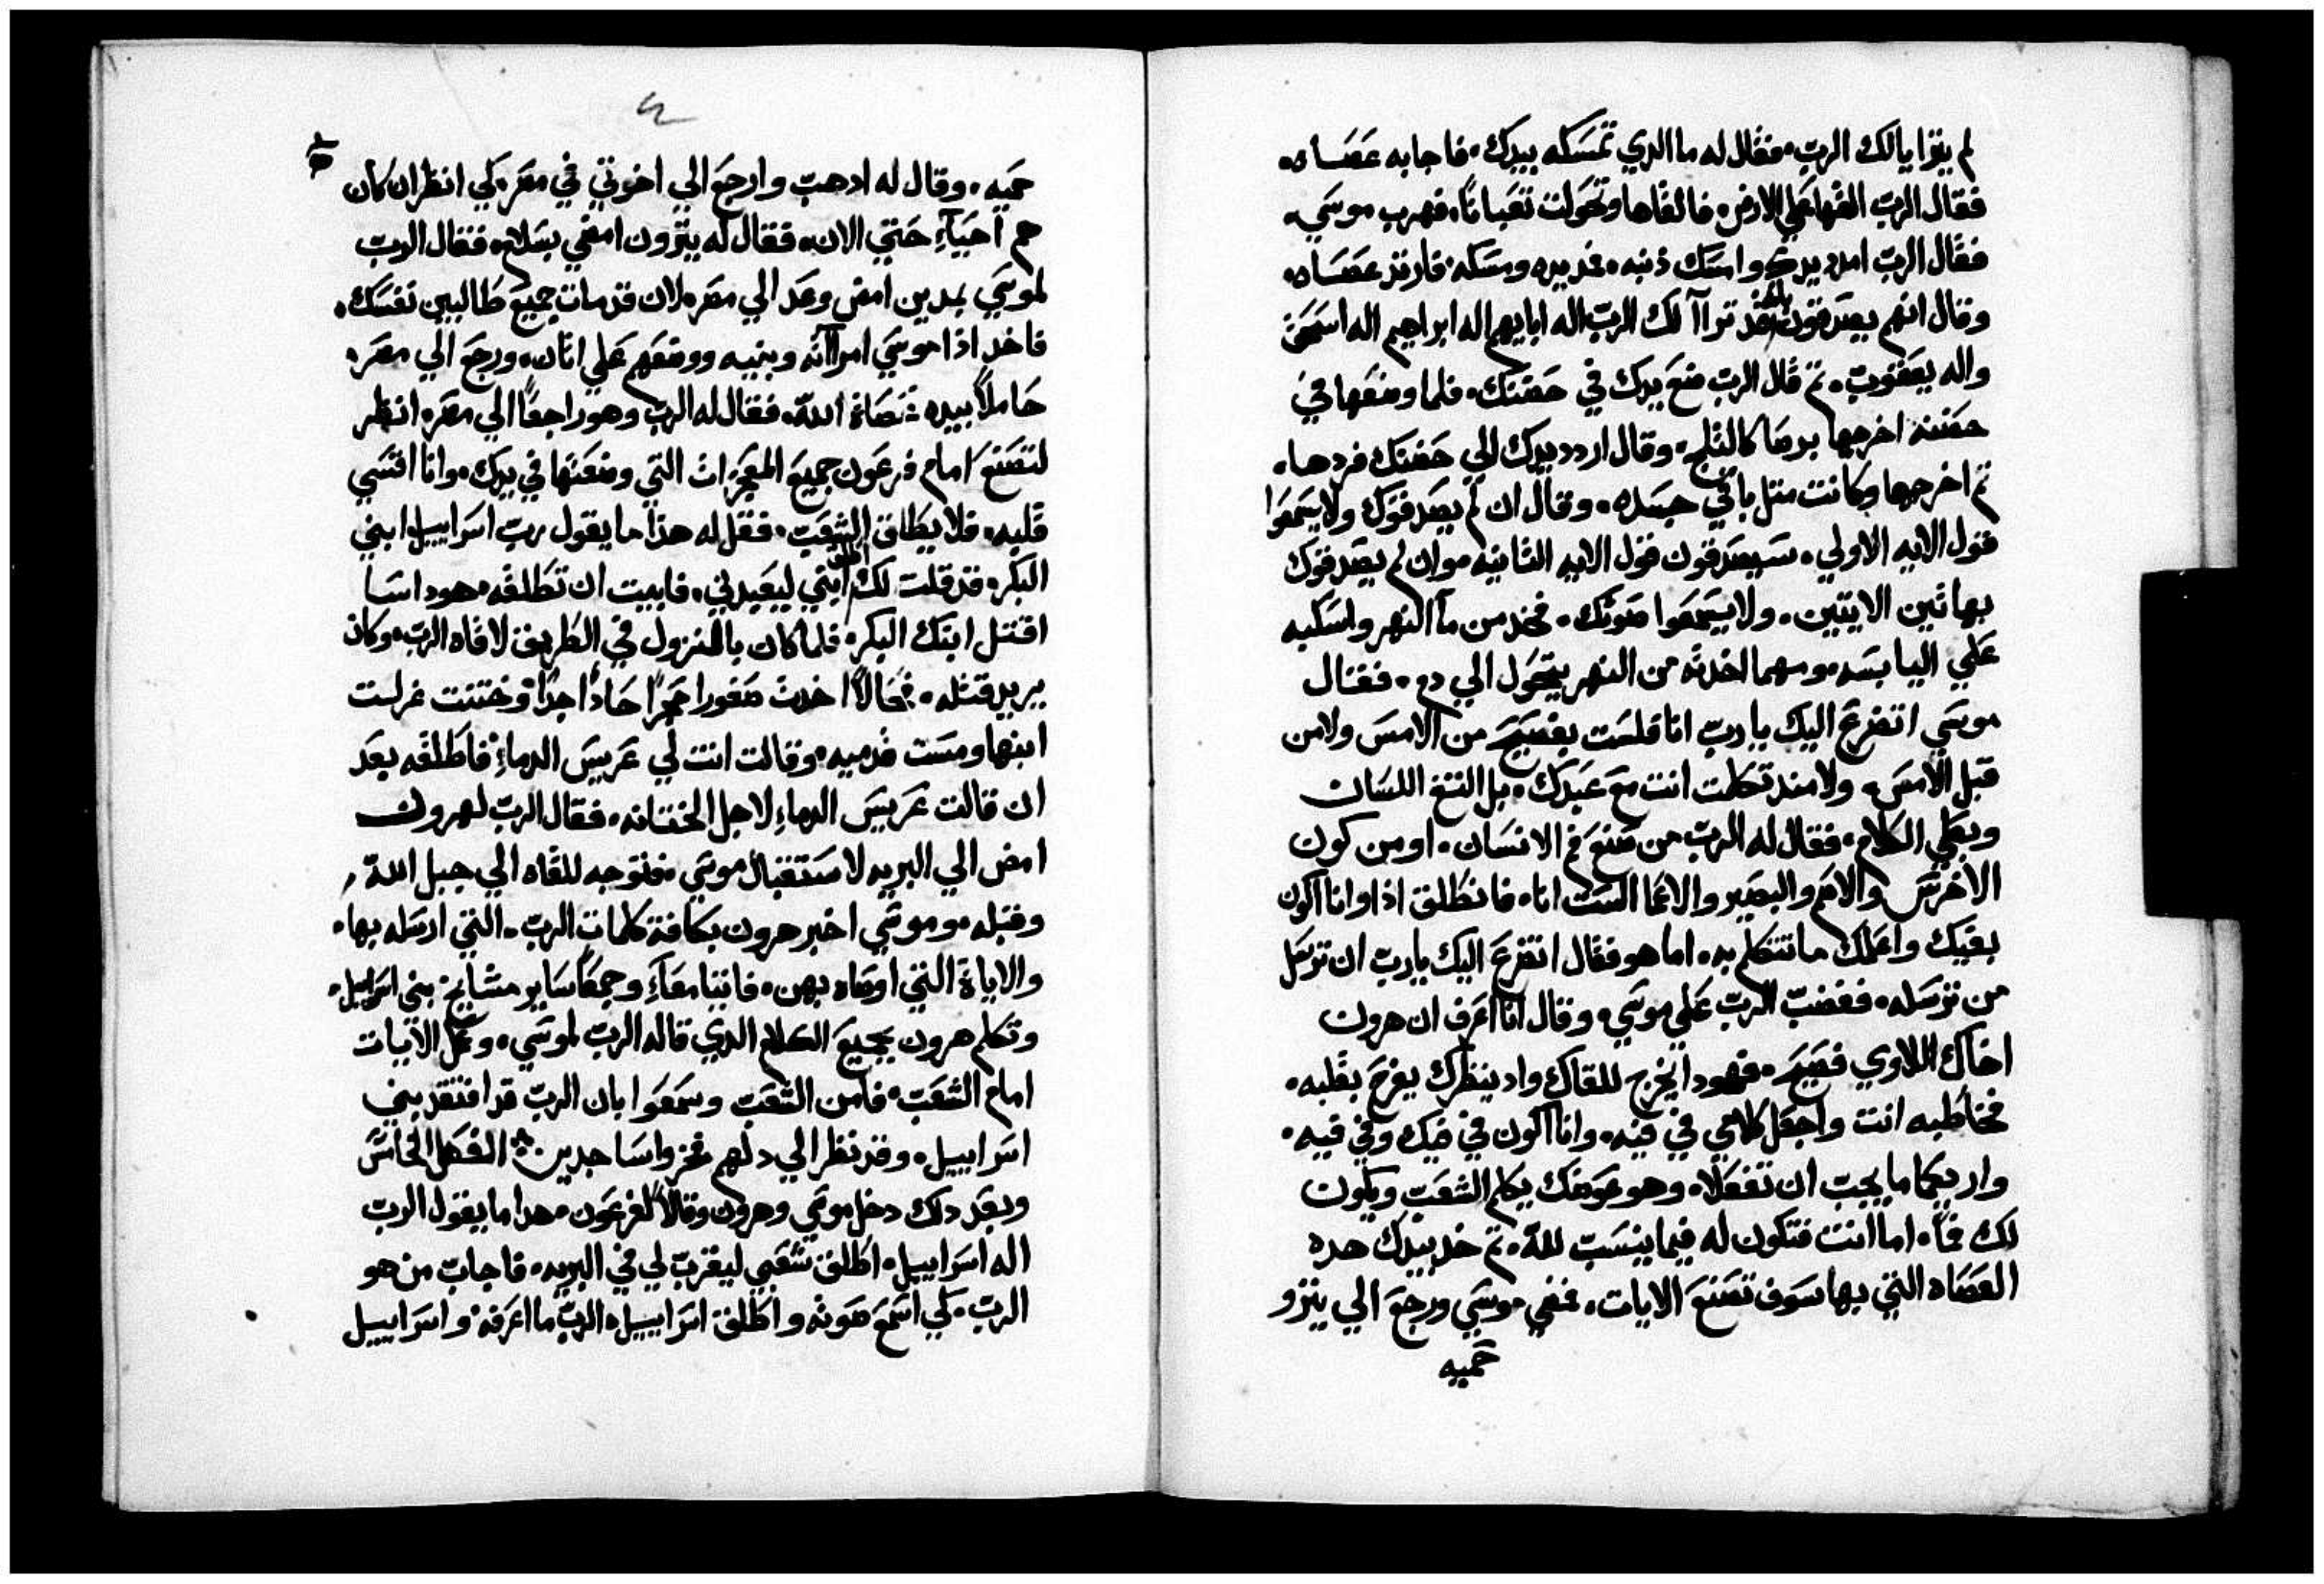 لم يترايا لك الرب. فقال له ما الدي تمسكه بيدك. فاجابه عصاه.
فقال الرب القها علي الارض. فالقاها وتحولت تعبانا. فهرب موسي.
فقال الرب امدد يدك وامسك ذنبه. فمد يده ومسكه. فارتد عصاه.
وقال انهم يصدقون بانه قد تراآ لك الرب اله ابايهم اله ابراهيم اله اسحق
واله يعقوب. تم قال الرب ضع يدك في حضنك. فلما وضعها في
حضنه اخرجها برصا كالثلج. وقال اردد يدك الي حضنك فردها.
تم اخرجها وكانت متل باقي جسده. وقال ان لم يصدقوك ولا يسمعوا
قول الايه الاولي. سيصدقون قول الايه التانيه. وان لم يصدقوك
بهاتين الايتين. ولا يسمعوا صوتك. فخد من مآ النهر واسكبه
علي اليابسه. ومهما اخدته من النهر يتحول الي دم. فقال
موسي اتضرع اليك يا رب انا فلست بفصيح من الامس ولا من
قبل الامس. ولا مند تكلمت انت مع عبدك. بل التغ اللسان
وبطي الكلام. فقال له الرب من صنع فم الانسان. او من كون
الاخرس والاصم والبصير والاعما الست انا. فانطلق اذا وانا اكون
بفيك واعلمك ما تتكلم به. اما هو فقال اتضرع اليك يا رب ان ترسل
من ترسله. فغضب الرب علي موسي. وقال انا اعرف ان هرون
اخاك اللاوي فصيح. فهودا يخرج للقاك واد ينظرك يفرح بقلبه.
فخاطبه انت واجعل كلامي في فيه. وانا اكون في فيك وفي فيه.
واريكما ما يجب ان تفعلاه. وهو عوضك يكلم الشعب ويكون
لك فمآ. اما انت فتكون له فيما ينسب لله. تم خد بيدك هده
العصاه التي بها سوف تصنع الايات. فمضي موسي ورجع الي يترو
حميه
حميه. وقال له ادهب وارجع الي اخوتي في مصر. لكي انظر ان كان
هم احياء حتي الان. فقال له يترون امضي بسلام. فقال الرب
لموسي بمدين امض وعد الي مصر. لان قد مات جميع طالبين نفسك.
فاخد اذا موسي امراته وبنيه ووضعهم علي اتان. ورجع الي مصر.
حاملا بيده عصاة الله. فقال له الرب وهو راجعا الي مصر. انظر
لتصنع امام فرعون جميع المعجزات التي وضعتها في يدك. وانا اقسي
قلبه. فلا يطلق الشعب. فقل له هذا ما يقول رب اسراييل ابني
البكر. قد قلت لك اطلق ابني ليعبدني. فابيت ان تطلقه. هودا سا
اقتل ابنك البكر. فلما كان بالمنزول في الطريق لاقاه الرب. وكان
يريد قتله. فحالا اخدت صفورا حجرا حادا جدا وختنت غرلت
ابنها ومست قدميه. وقالت انت لي عريس الدماء. فاطلقه بعد
ان قالت عريس الدماء لاجل الختانه. فقال الرب لهرون
امض الي البريه لاستقبال موسي. فتوجه للقاه الي جبل الله.
وقبله. وموسي اخبر هرون بكافة كلمات الرب. التي ارسله بها.
والاياة التي اوصاه بهن. فاتيا معآ وجمعا ساير مشايخ بني اسراييل.
وتكلم هرون بجميع الكلام الدي قاله الرب لموسي. وعمل الايات
امام الشعب. فامن الشعب وسمعوا بان الرب قد افتقد بني
اسراييل. وقد نظر الي دلهم فخروا ساجدين. الفصل الخامس
وبعد دلك دخل موسي وهرون وقالا لفرعون. هدا ما يقول الرب
اله اسراييل. اطلق شعبي ليقرب لي في البريه. فاجاب من هو
الرب. لكي اسمع صوته واطلق اسراييل. الرب ما اعرفه. واسراييل